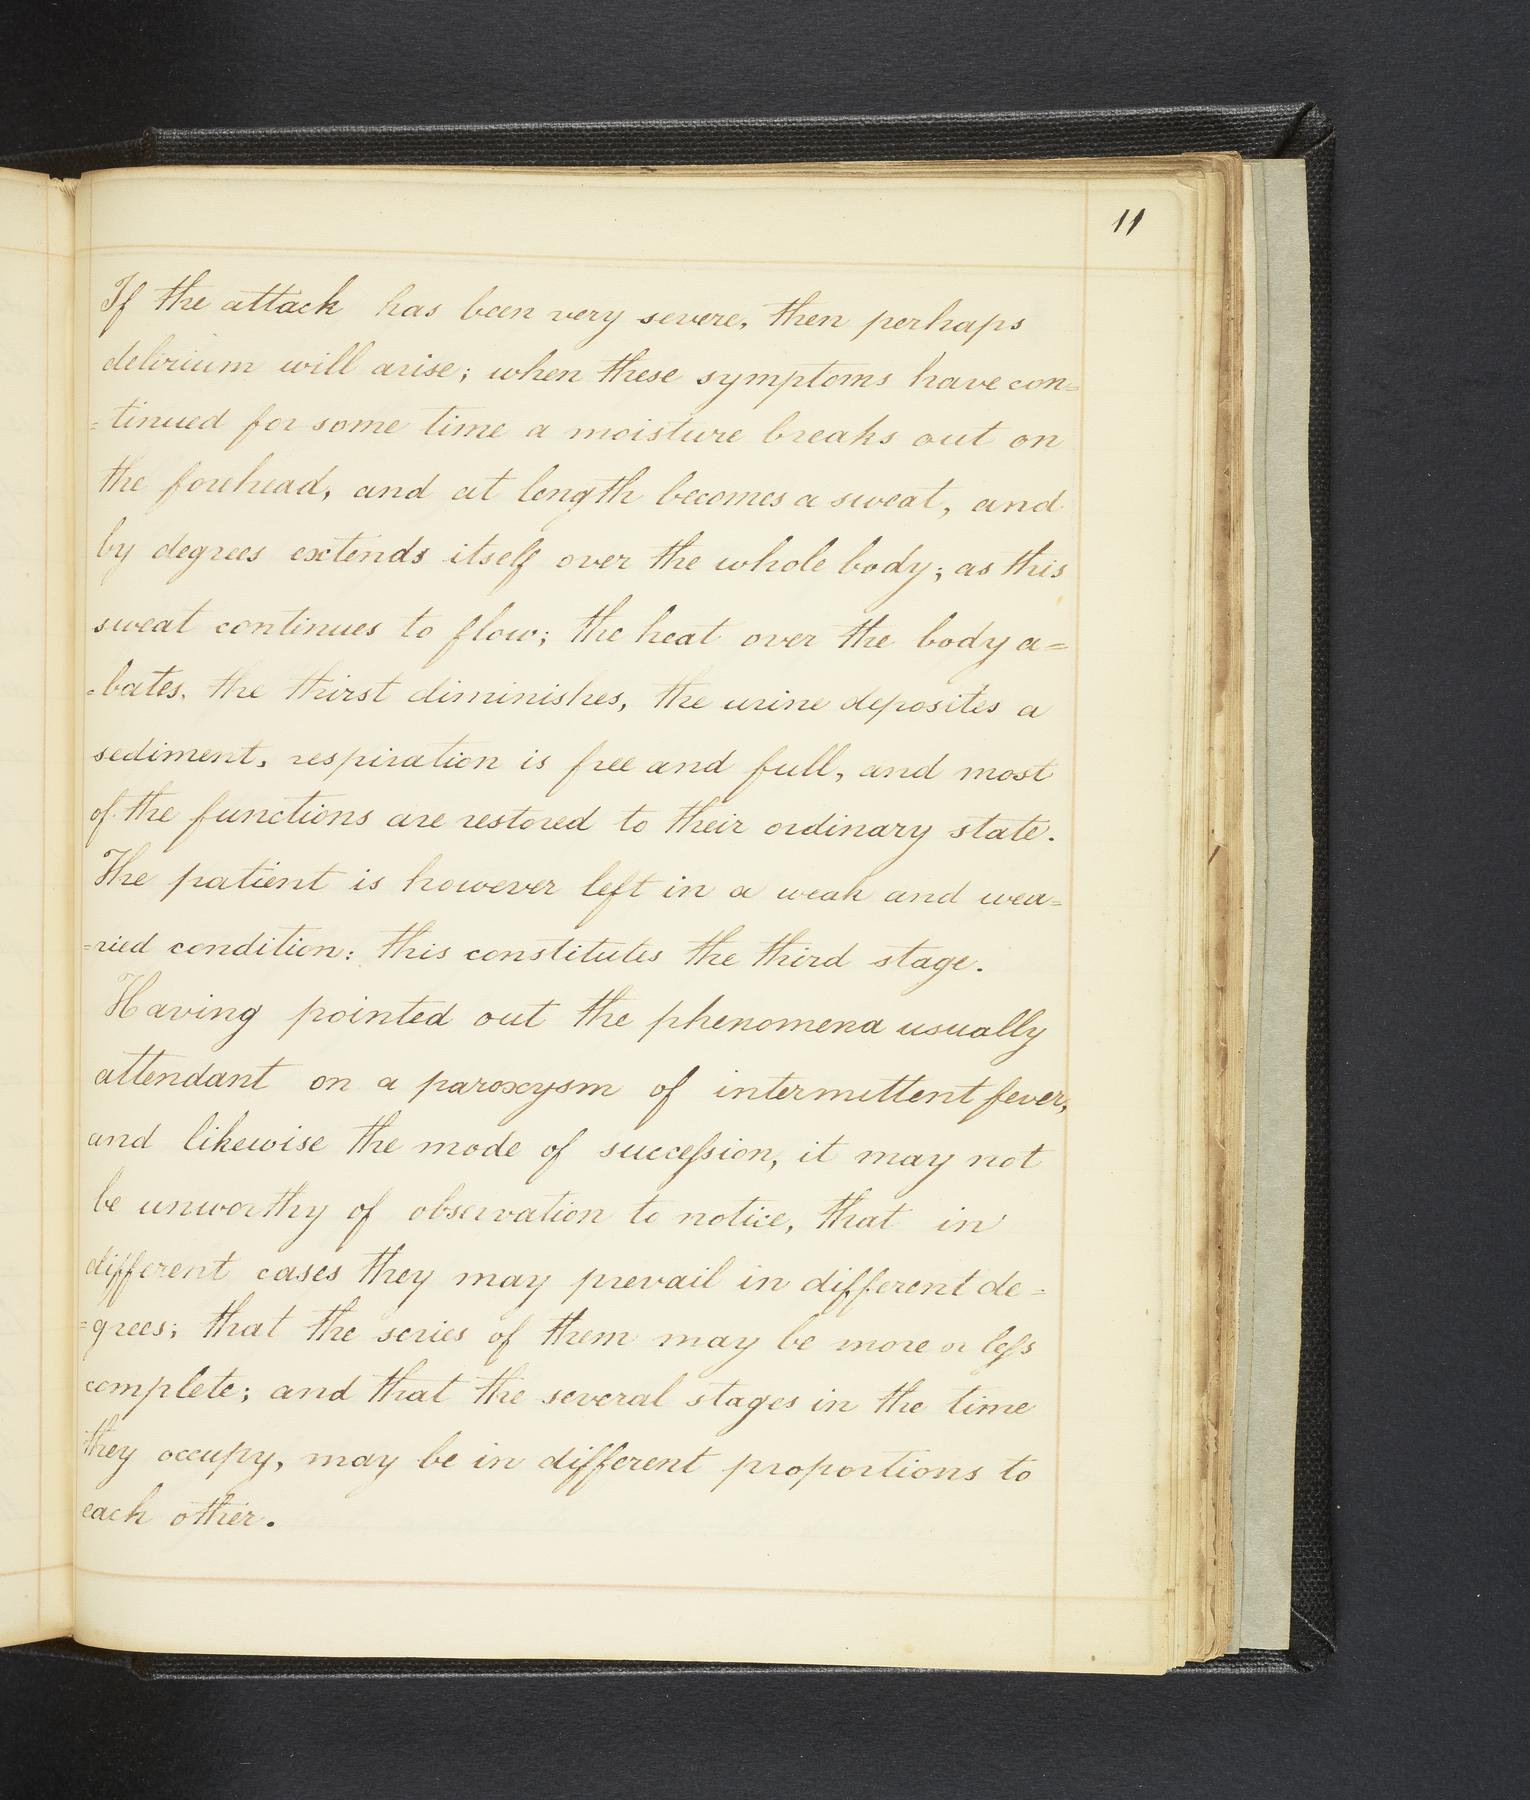 11
If the attack has been very severe, then perhaps
delirium will arise; when these symptoms have con=
=tinued for some time a moisture breaks out on
the forehead, and at length becomes a sweat, and
by degrees extends itself over the whole body; as this
sweat continues to flow; the heat over the body a=
=bates, the thirst diminishes, the urine deposites a
sediment, respiration is free and full, and most
of the functions are restored to their ordinary state.
The patient is however left in a weak and wea=
=ried condition: this constitutes the third stage.
Having pointed out the phenomena usually
attendant on a paroxysm of intermittent fever,
and likewise the mode of succeſsion, it may not
be unworthy of observation to notice, that in
different cases they may prevail in different de=
=grees; that the series of them may be more or leſs
complete; and that the several stages in the time
they occupy, may be in different proportions to
each other.